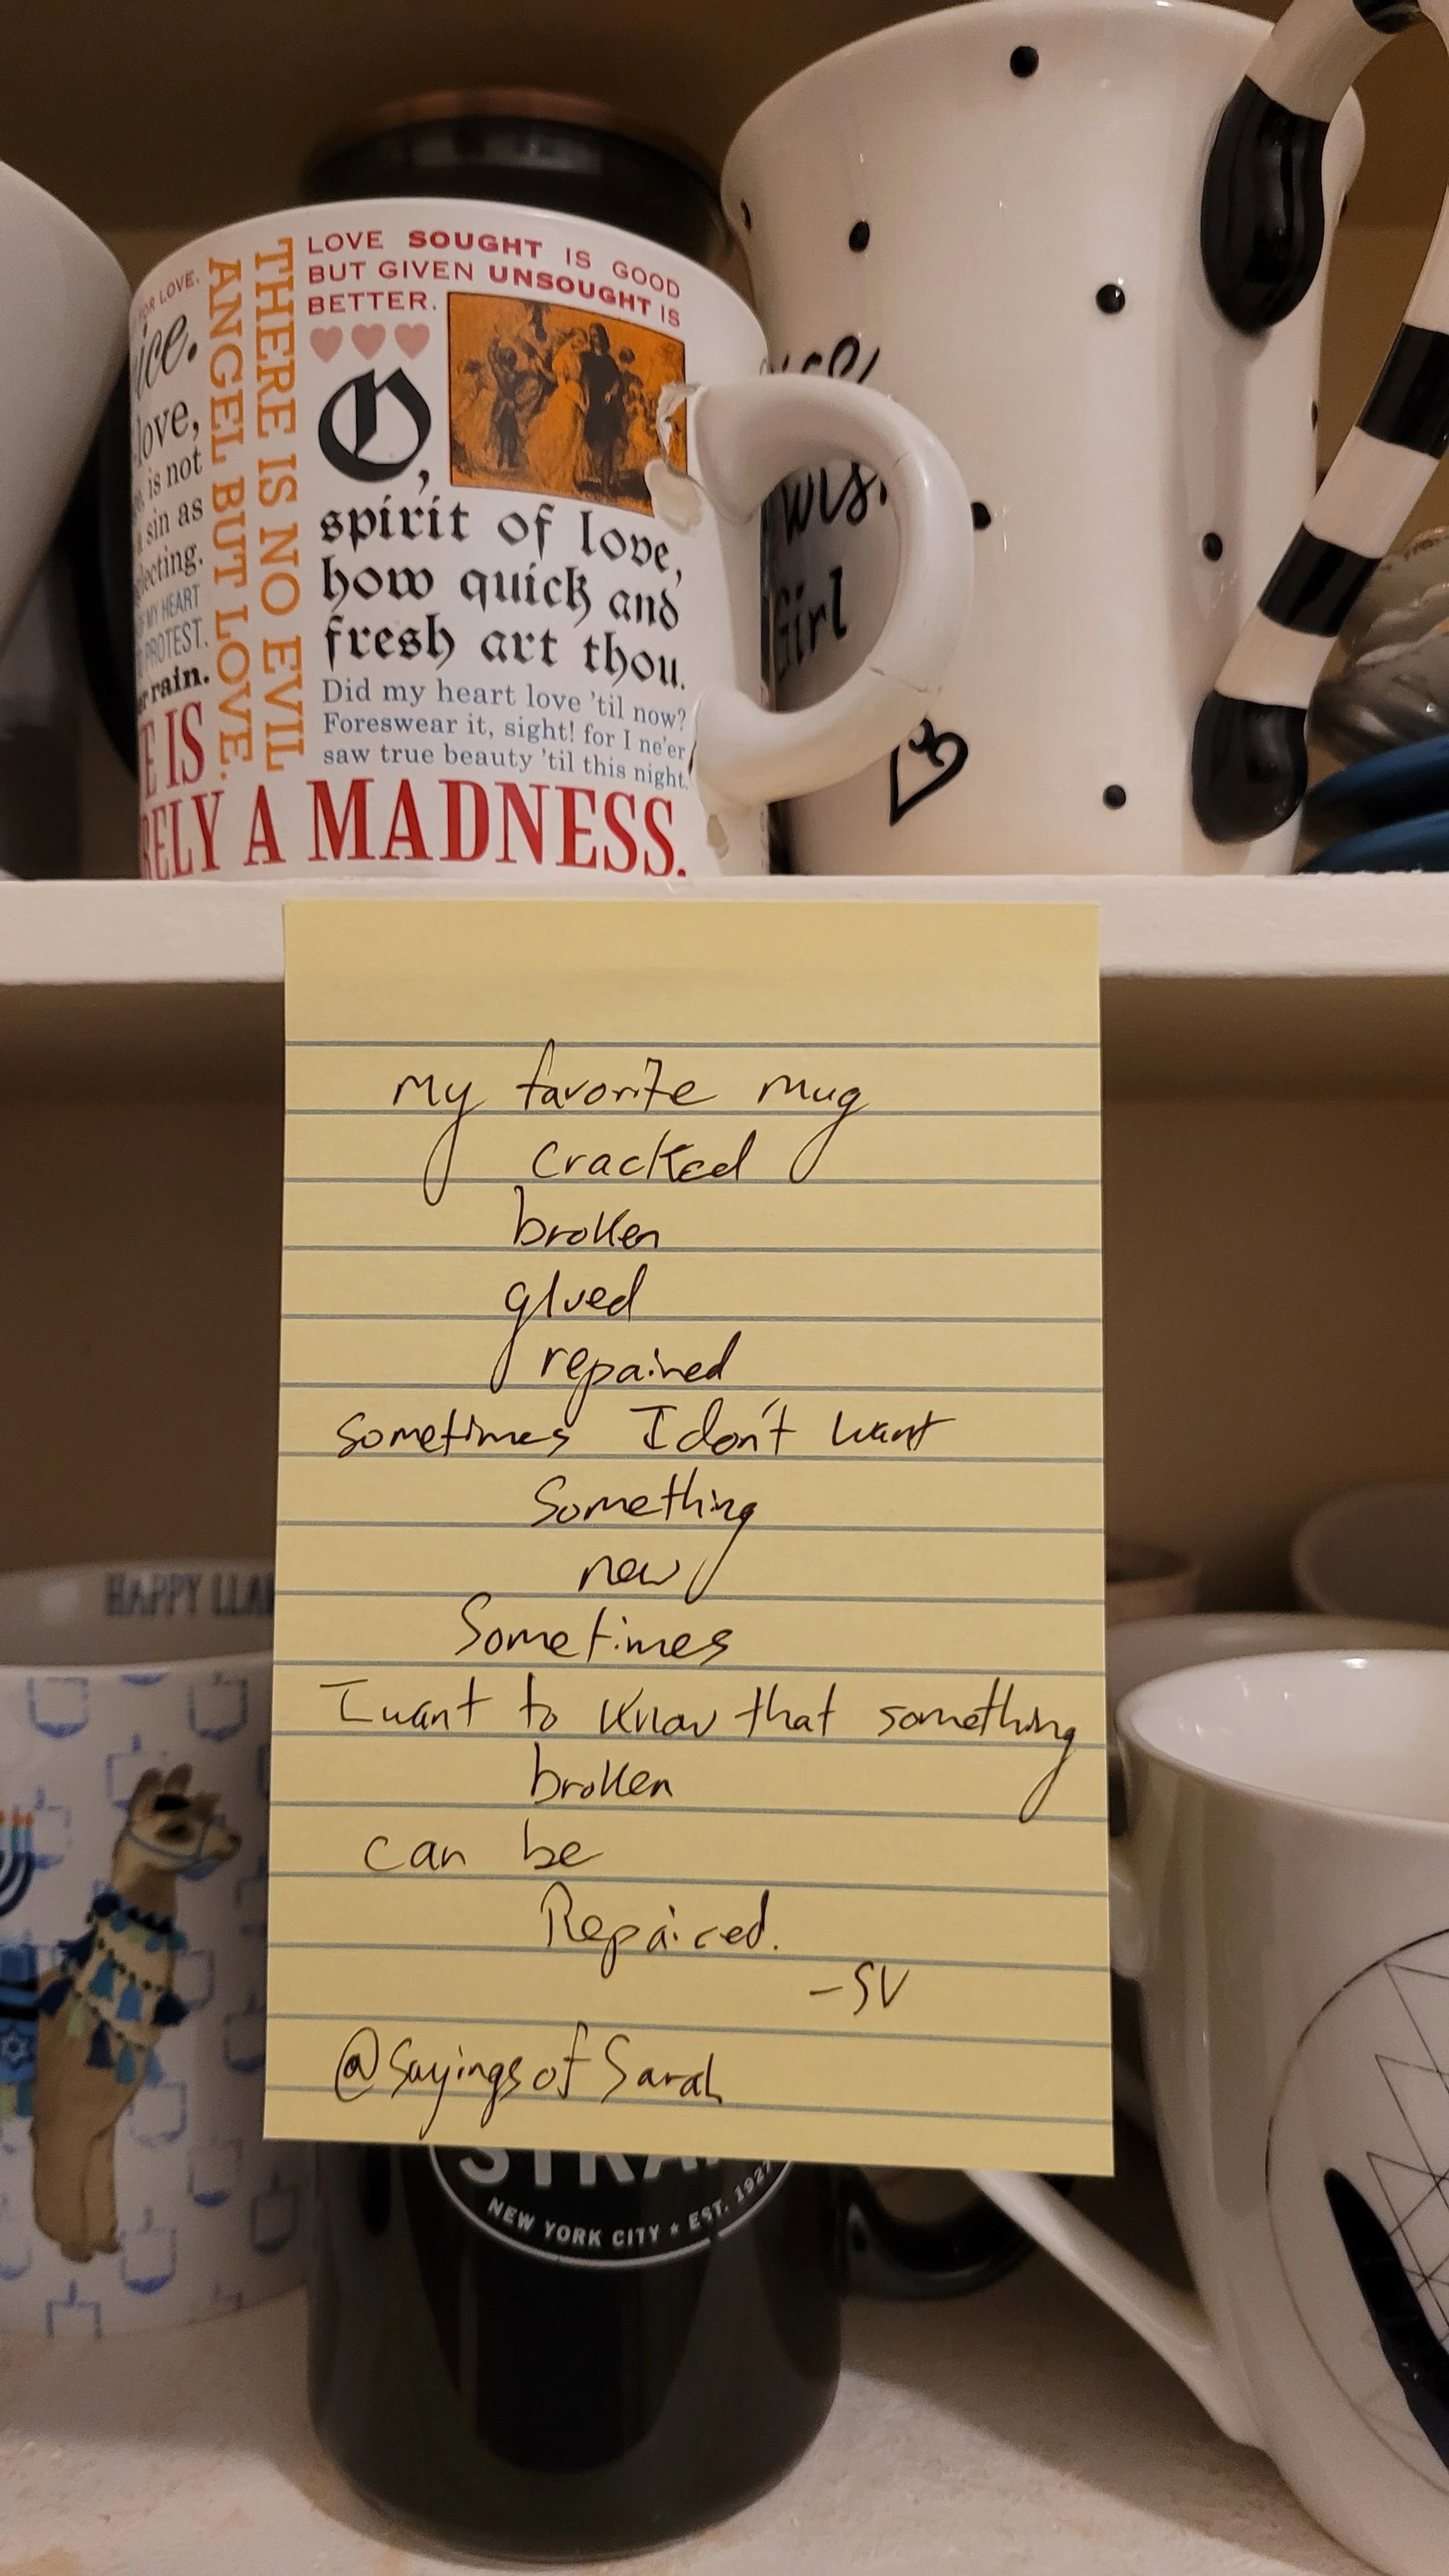 FOR LOVE.
love,
is not
sin as
MY HEART
PROTEST.
rain.
E IS
RELY A MADNESS.
THERE IS NO EVIL
ANGEL BUT LOVE.
LOVE SOUGHT IS GOOD
BUT GIVEN UNSOUGHT IS
BETTER.
O,
spirit of love,
how quick and
fresh art thou.
Did my heart love 'til now?
Foreswear it, sight! for I ne'er
saw true beauty 'til this night.
Girl
My favorite mug
cracked
broken
glued
repaired
sometimes I don't want
Something
new
Sometimes
I want to know that something
broken
can be
Repaired.
-SV
@SayingsofSarah
HAPPY LLA
STRA
NEW YORK CITY ★ EST. 1927